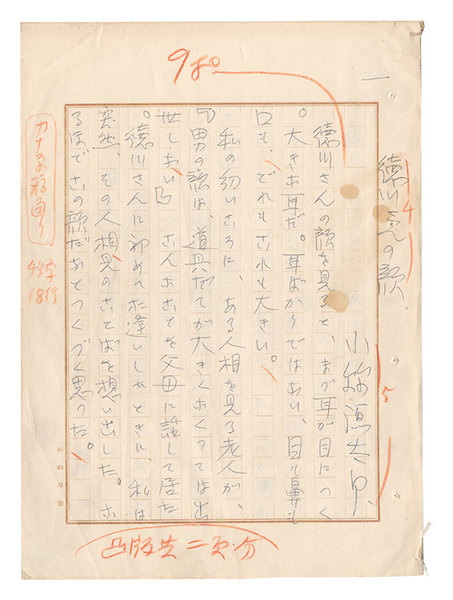 一
9ポ。
徳川さんの顔
4
小絲源太郎
5
徳川さんの顔を見ると、まづ耳が目につく
。大きな耳だ。耳ばかりではない、目も鼻も
口も、どれもこれも大きい。
私の幼いころに、ある人相を見る老人が、
「男の顔は、道具だてが大きくなくつては出
世しない」こんなことを父母に話して居た
。徳川さんに初めてお逢いしたときに、私は
突然、その人相見のことばを想い出した。な
るほどこの顔だなとつくづく思つた。
カナ原稿通り
43字
18行
凸版共二頁分